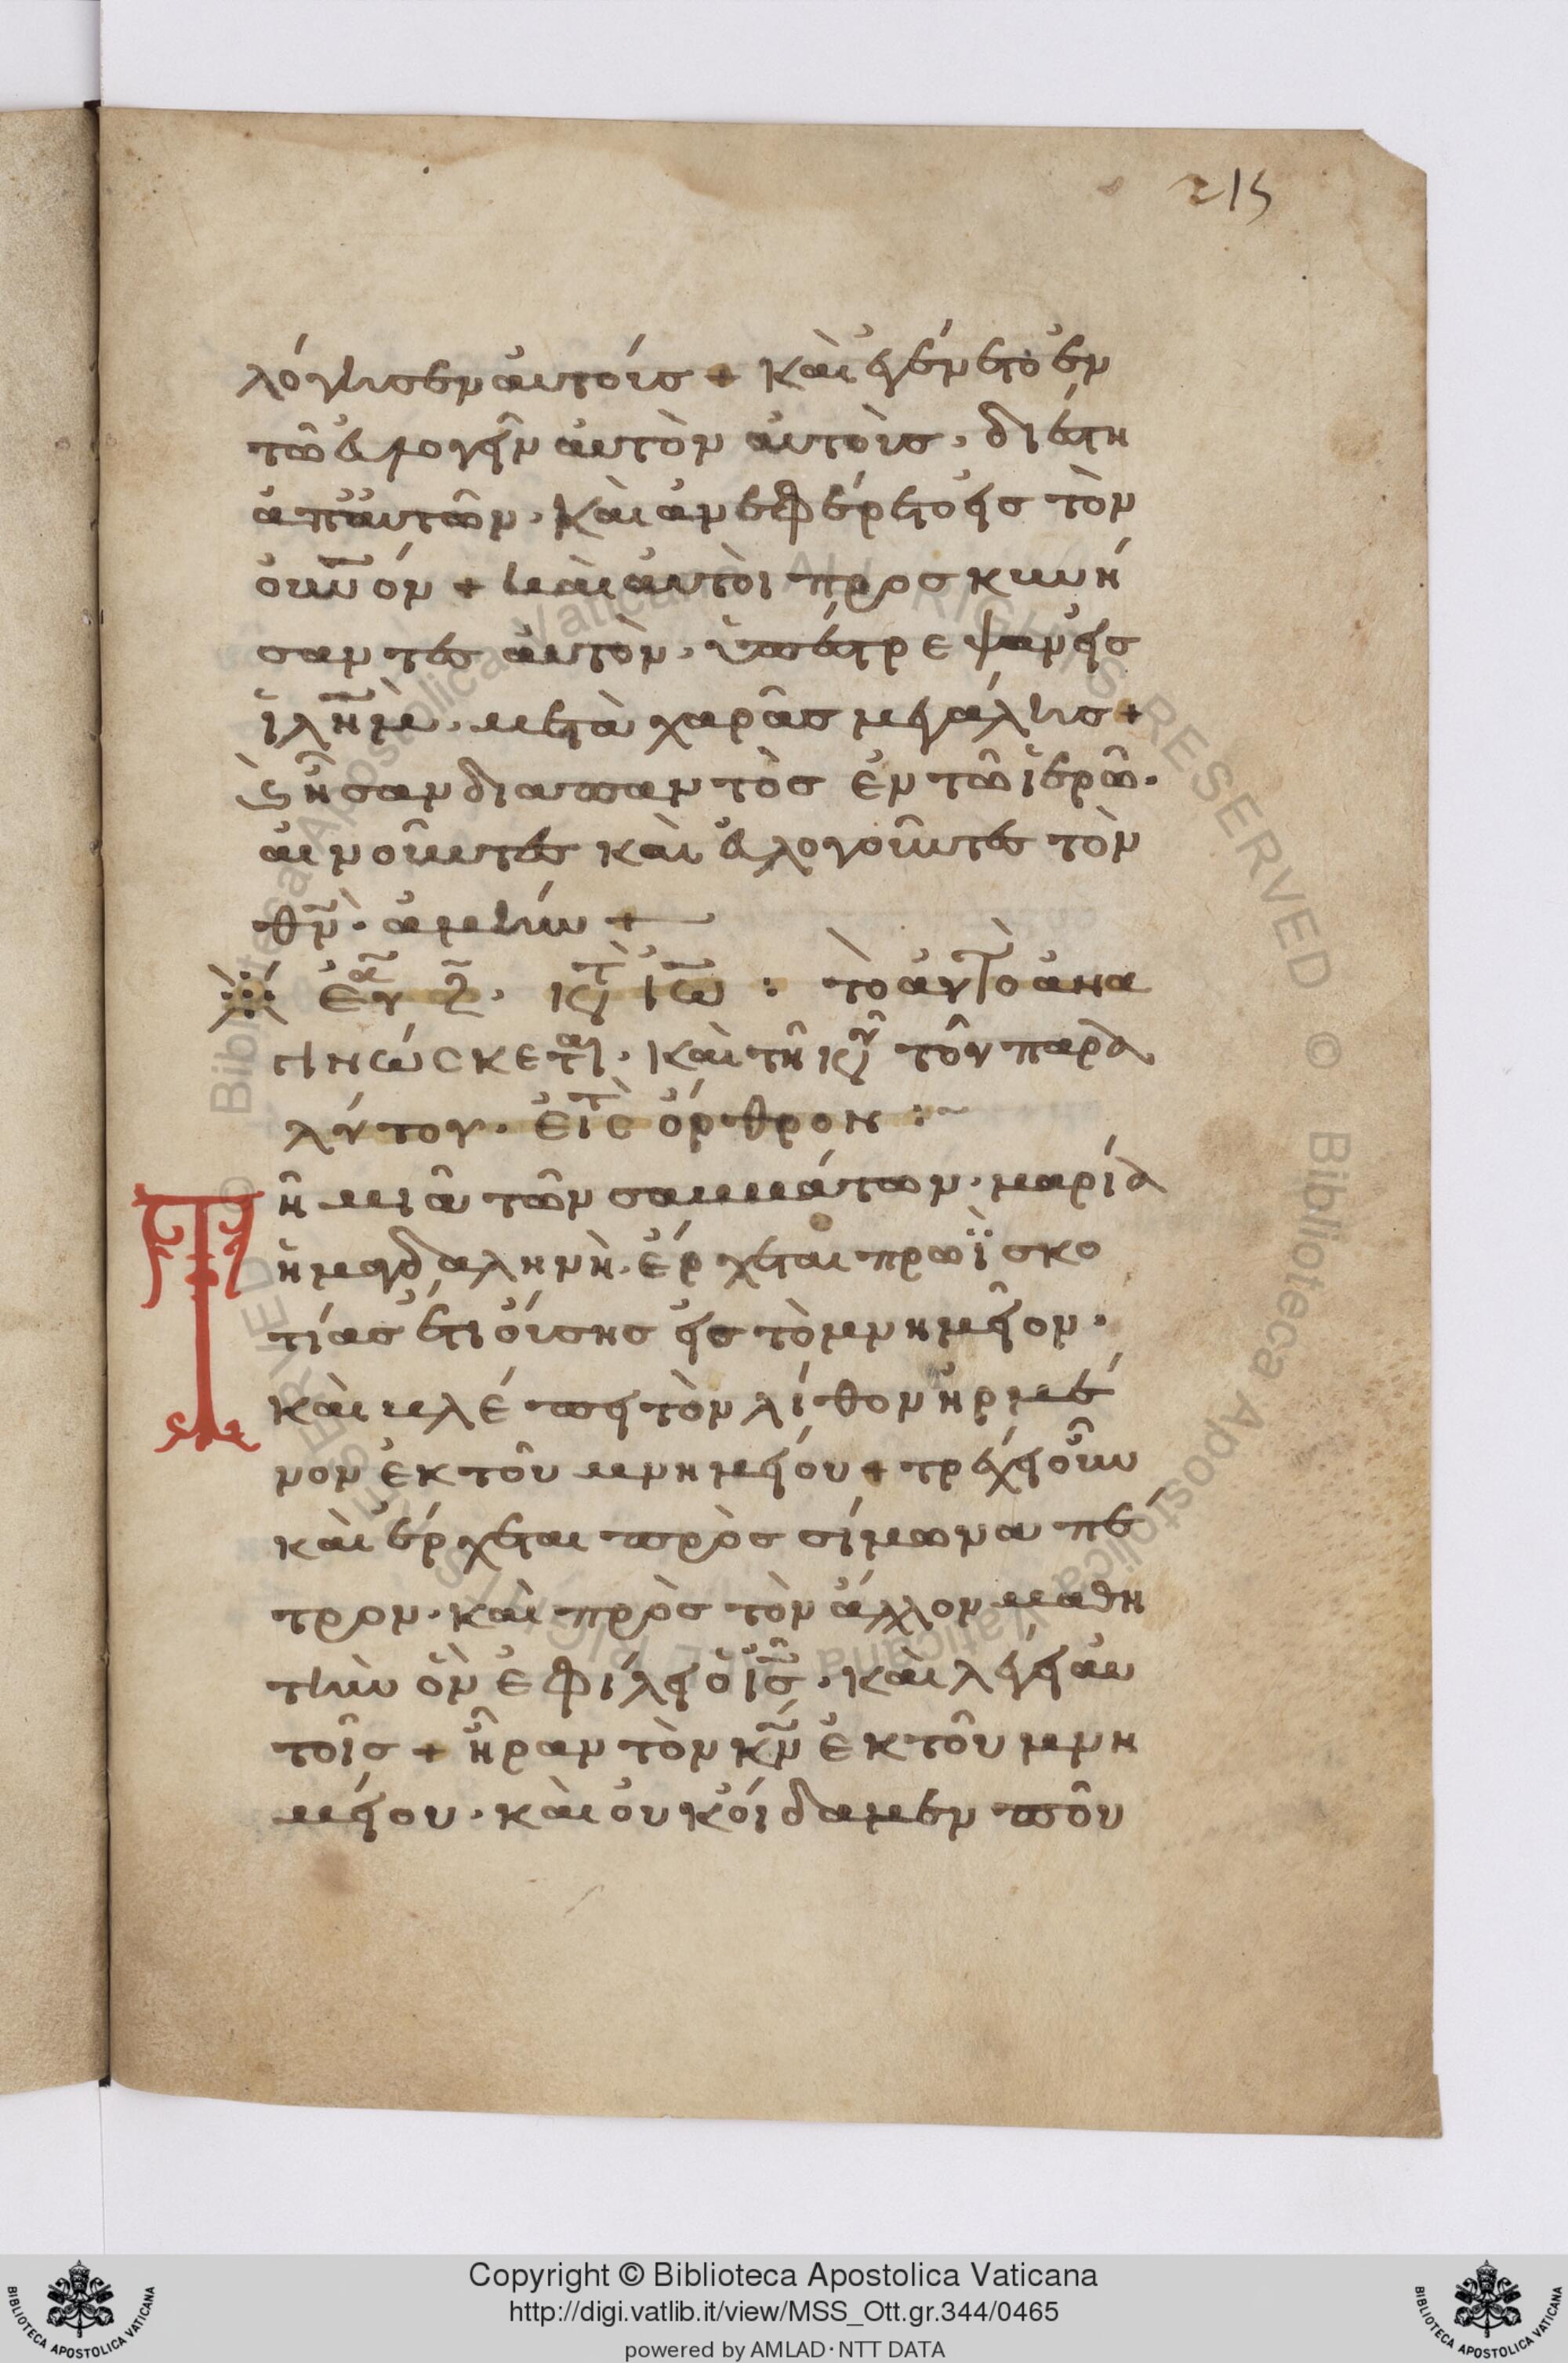 215
λόγησεν αὐτοίς + καὶ ἐγένετο ἐν
τῶ ἐυλογεῖν αὐτὸν αὐτοὺς · διέστη
ἀπ' ἀυτῶν · καὶ ἀνεφέρετο εἰς τὸν
οὐν͞όν + καὶ ἀυτοὶ προσκυνή
σαντες ἀυτὸν · ὑπέστρεψαν εἰς
ἰλ͞ημ · μετὰ χαρᾶς μεγάλης +
ϗ ἦσαν διαπαντὸς ἐν τῶ ἱερῶ ·
αἰνοῦντες καὶ ἐυλογοῦντες τὸν
θ͞ν · ἀμήν +
τὸ ἀυτὸ ἀνα
γινώσκεται · καὶ τῆ κυ τοῦ παρα
λύτου · εἰς τ ὄρθρον :~
Τῆ μιᾶ τῶν σαββάτων · μαρία
ἡ μαγδαληνὴ · ἔρχεται πρωῒ σκο
τίας ἔτι οὔσης εἰς τὸ μνημεῖον ·
καὶ βλέπει τὸν λίθον ἠρμέ
νον ἐκ τοῦ μνημείου + τρέχει οὖν
καὶ ἔρχεται πρὸς σίμωνα πέ
τρον · καὶ πρὸς τὸν ἄλλον μαθη
τὴν ὃν ἐφίλει ὁ ἰ͞ς · καὶ λέγει ἀυ
τοῖς + ἦραν τὸν κ͞ν ἐκ τοῦ μνη
μείου · καὶ οὐκ οἴδαμεν ποῦ
Copyright © Biblioteca Apostolica Vaticana
http://digi.vatlib.it/view/MSS_Ott.gr.344/0465
powered by AMLAD · NTT DATA